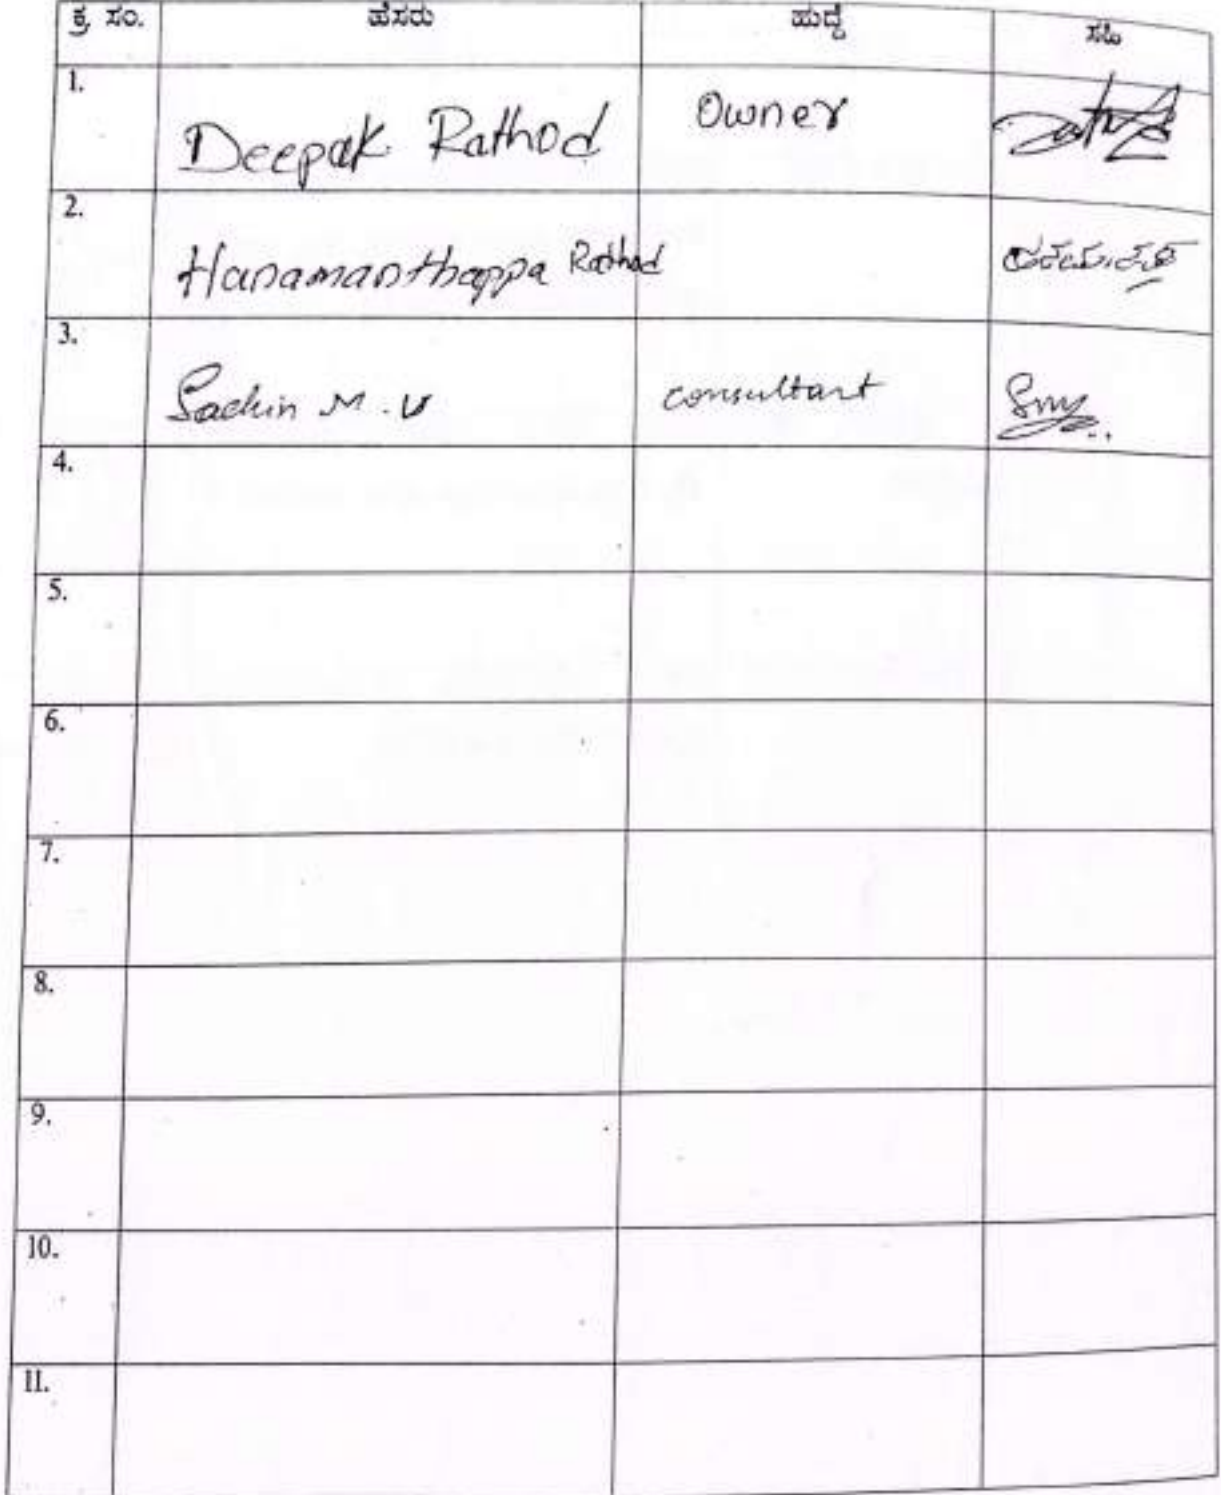 ಕ್ರ ಸಂ. ಹೆಸರು ಹುದ್ದೆ ಸಹಿ
1. Deepak Rathod Owner
2. Hanamanthappa Rathod
3. Sachin M.V consultant
4.
5.
6.
7.
8.
9.
10.
11.